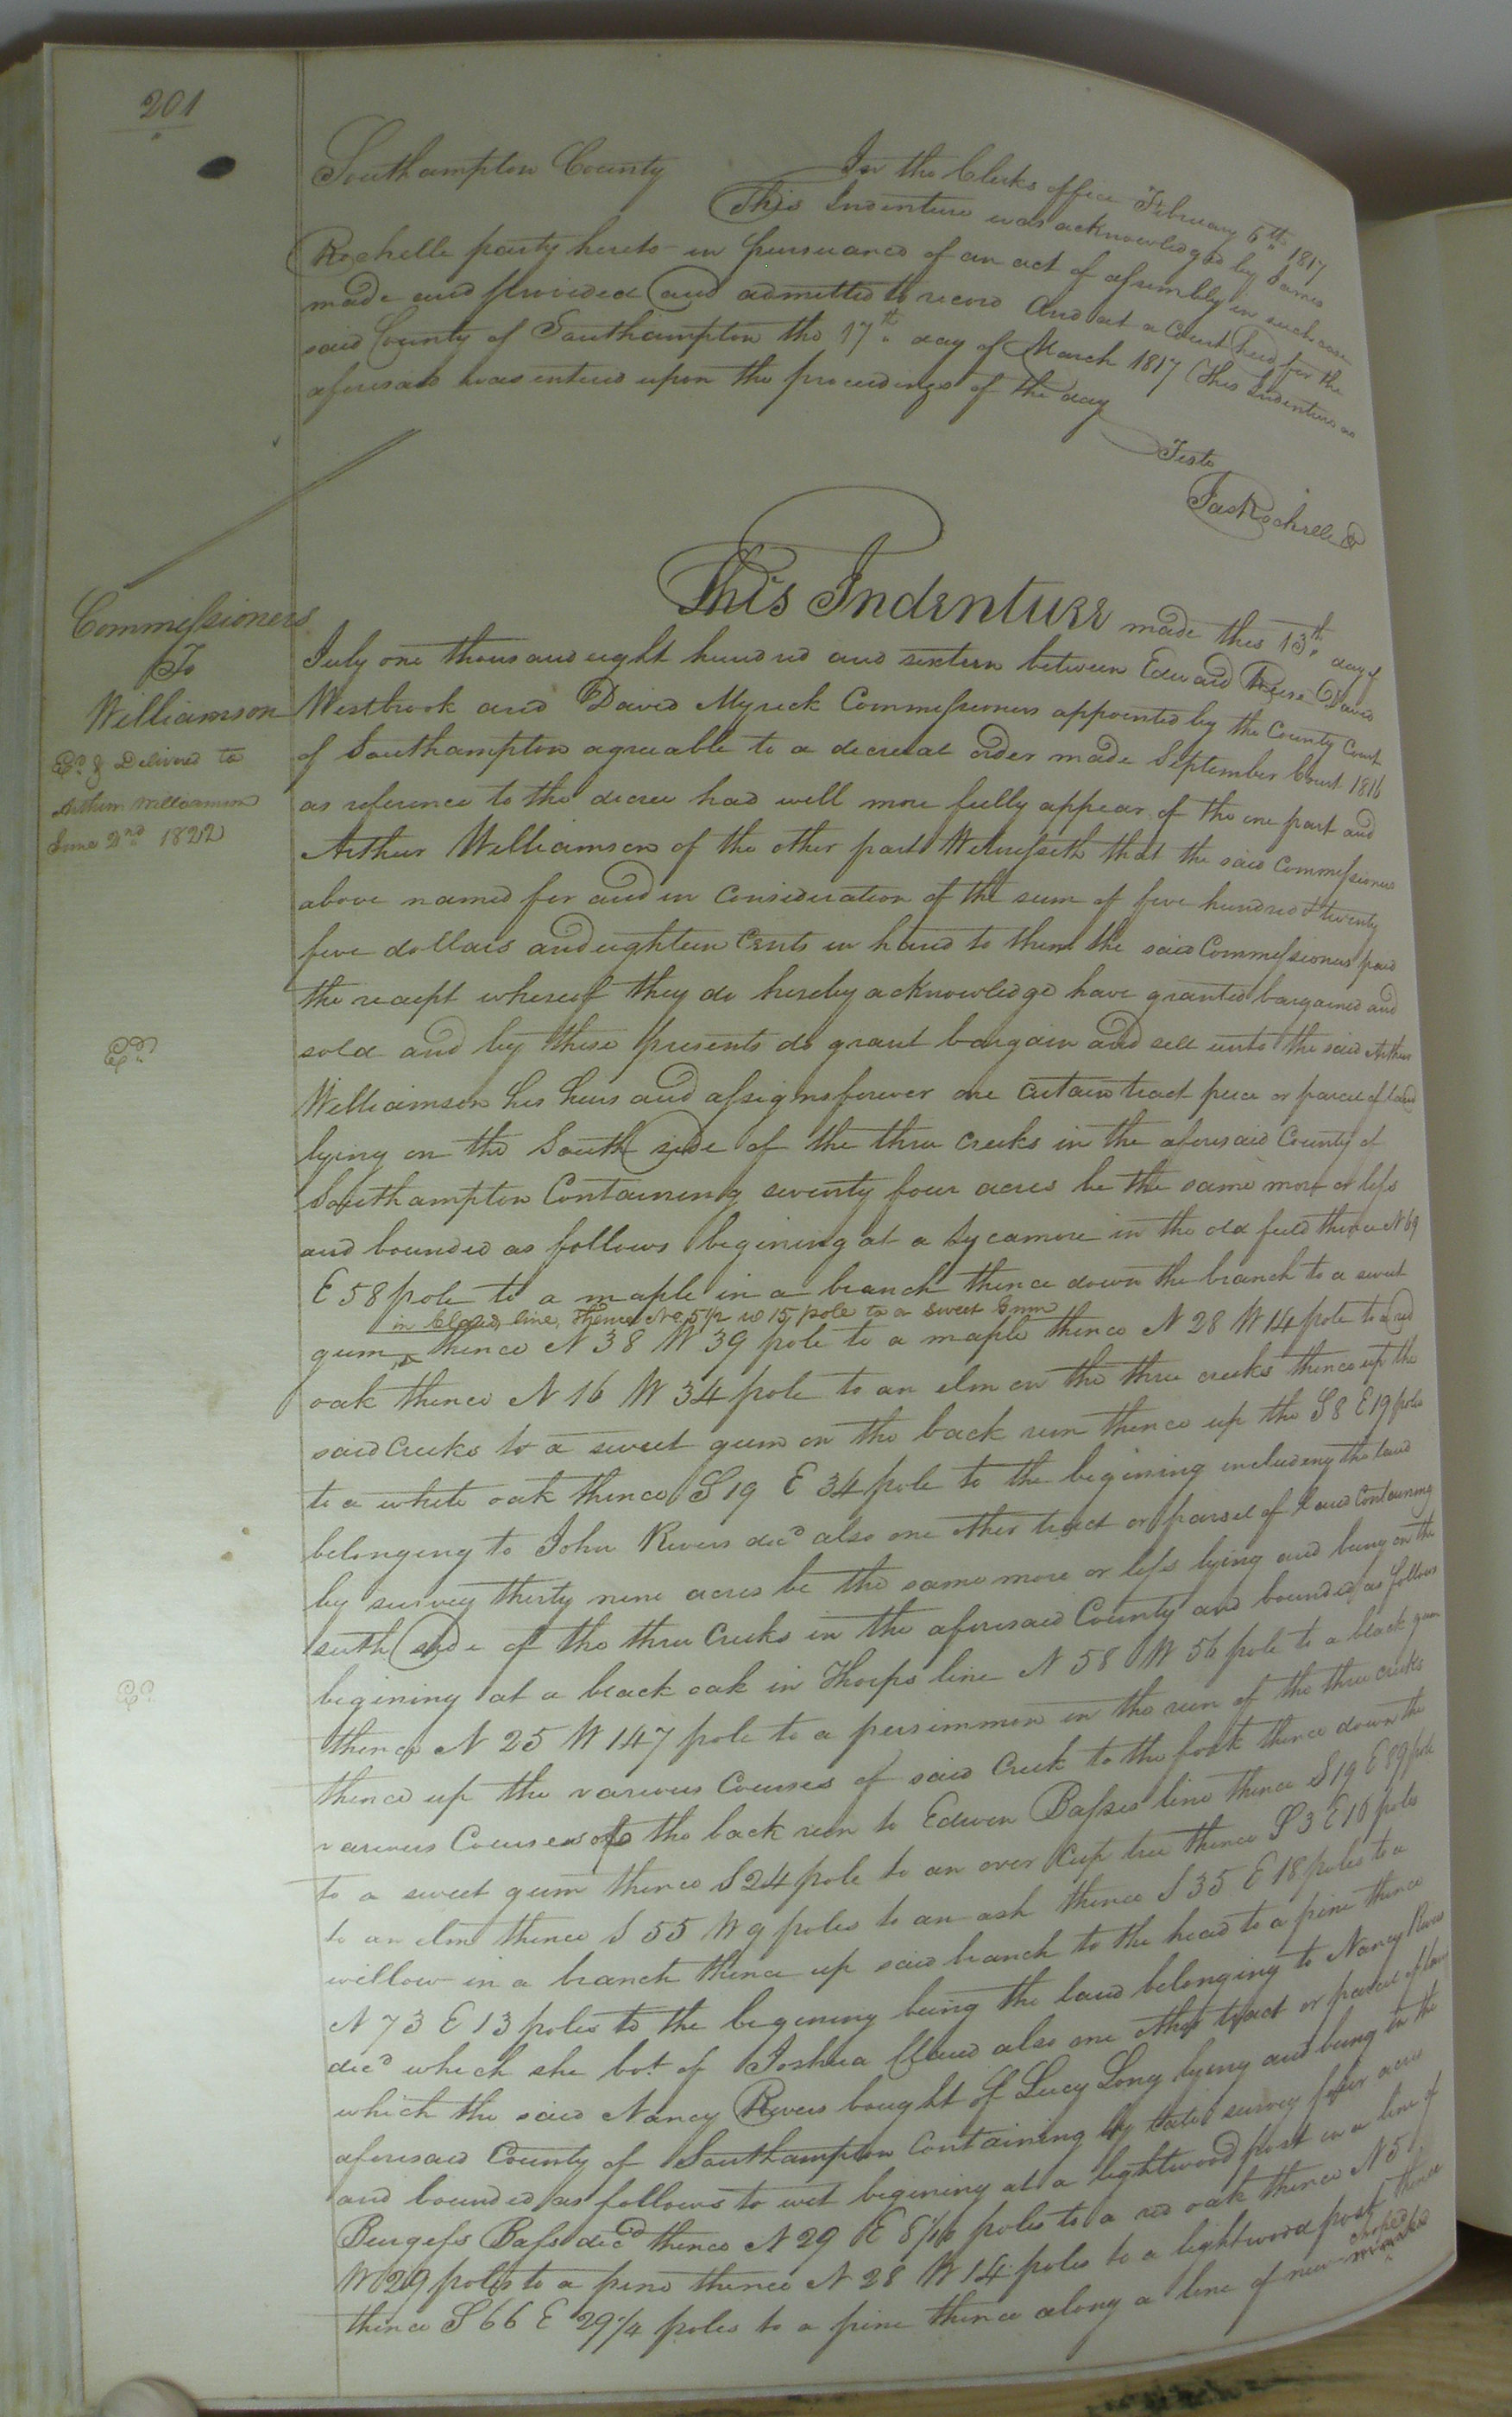 201
Southampton County In the Clerks office February 6th 1817
This Indenture was acknowledged by James
Rochelle party hereto in pursuance of an act of assembly in such case
made and provided and admitted to record And at a Court held for the
said County of Southampton the 17th day of March 1817 This Indenture as
aforesaid was entered upon the proceedings of the day
Teste
Jas Rochelle
Commissioners
To
Williamson
Ex.d & Delivered to
Arthur Williamson
June 2nd 1822
This Indenture made this 13th day of
July one thousand eight hundred and sixteen between Edward David
Westbrook and David Myrick Commissioners appointed by the County Court
of Southampton agreeable to a decretal order made September Court 1816
as reference to the decree had will more fully appear of the one part and
Arthur Williamson of the other part Witnesseth that the said Commissioners
above named for and in Consideration of the sum of five hundred & twenty
five dollars and eighteen Cents in hand to them the said Commissioners paid
the receipt whereof they do hereby acknowledge have granted bargained and
sold and by these presents do grant bargain and sell unto the said Arthur
Williamson his heirs and assigns forever one certain tract piece or parcel of land
lying on the South side of the three Creeks in the aforesaid County of
Southampton Containing seventy four acres be the same more or less
and bounded as follows begining at a Sycamore in the old field thence N 69
E 58 pole to a maple in a branch thence down the branch to a sweet
in line, Thence N 5 1/2 W 15 pole to a sweet Gum
gum thence N 38 W 39 pole to a maple thence N 28 W 14 pole to a red
oak thence N 16 W 34 pole to an elm on the three creeks thence up the
said Creeks to a sweet gum on the back run thence up the S 8 E 19 poles
to a white oak thence S 19 E 34 pole to the begining including the land
belonging to John Rivers decd also one other tract or parsel of Land Containing
by survey thirty nine acres be the same more or less lying and being on the
south side of the three Creeks in the aforesaid County and bounded as follows
begining at a black oak in Thorps line N 58 W 56 pole to a black gum
thence N 25 W 147 pole to a persimmon in the run of the three creeks
thence up the various Courses of said Creek to the fork thence down the
various Courses of the back run to Edwin Basses line thence S 19 E 89 pole
to a sweet gum thence S 24 pole to an over Cup tree thence S 3 E 10 poles
to an elm thence S 55 W 9 poles to an ash thence S 35 E 18 poles to a
willow in a branch thence up said branch to the head to a pine thence
N 73 E 13 poles to the begining being the land belonging to Nancy Rivers
decd which she bot of Joshua Claud also one other tract or parcel of land
which the said Nancy Rivers bought of Lucy Long lying and being in the
aforesaid County of Southampton Containing by late survey four acres
and bounded as follows to wit begining at a lightwood post in a line of
Burgess Bass decd thence N 29 E 8 1/10 poles to a red oak thence N 5
W 29 poles to a pine thence N 28 W 14 poles to a lightwood post thence
thence S 66 E 29 1/4 poles to a pine thence along a line of new choped